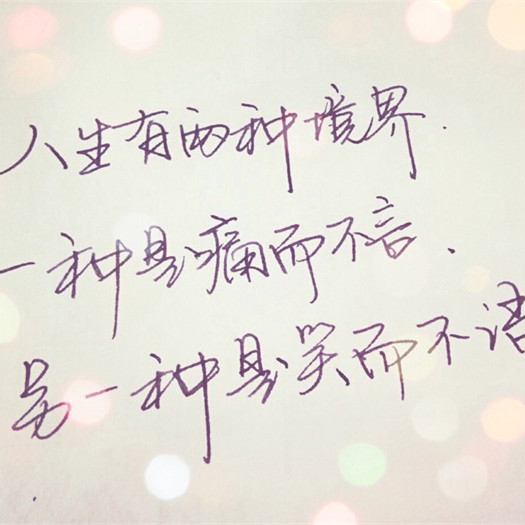 人生有两种境界.
一种是痛而不言、
另一种是笑而不语